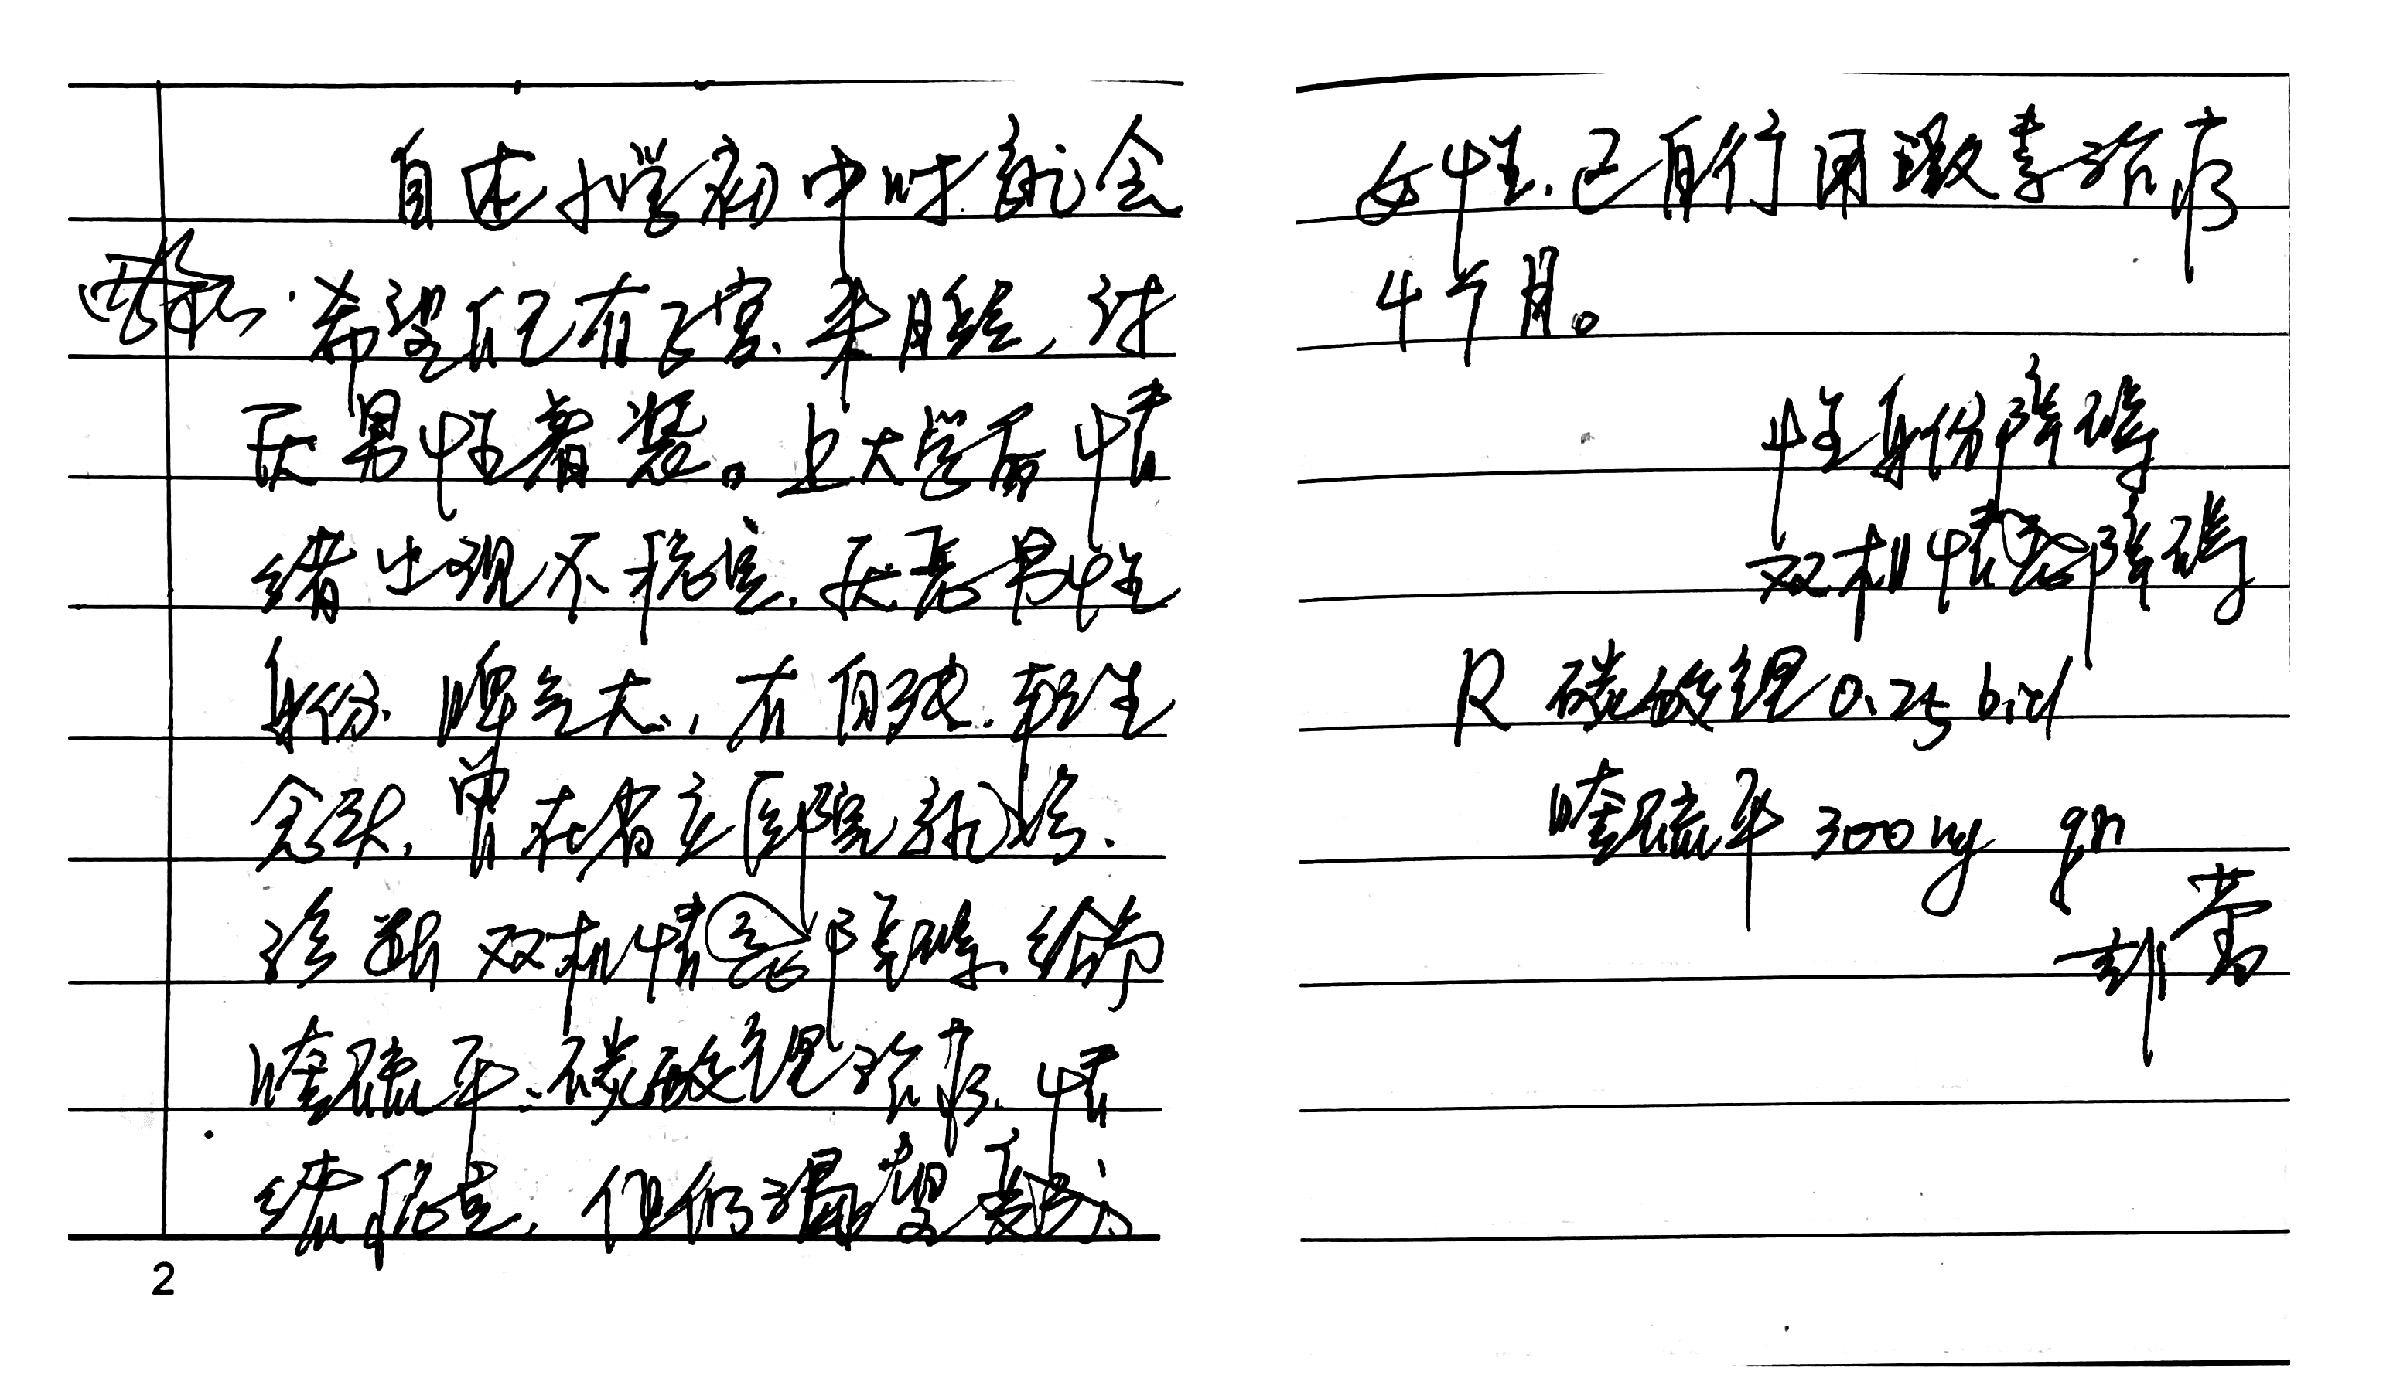 自述小学初中时就会
希望自己有子宫、来月经，讨
厌男性着装。上大学后情
绪出现不稳定，厌恶男性
身份，脾气大，有自残、轻生
念头，曾在省立医院就诊，
诊断双相情感障碍，给予
喹硫平、碳酸锂治疗，情
绪稳定，但仍渴望变为
2
女性，已自行用激素治疗
4个月。
性身份障碍
双相情感障碍
R 碳酸锂 0.25 bid
喹硫平 300mg qn